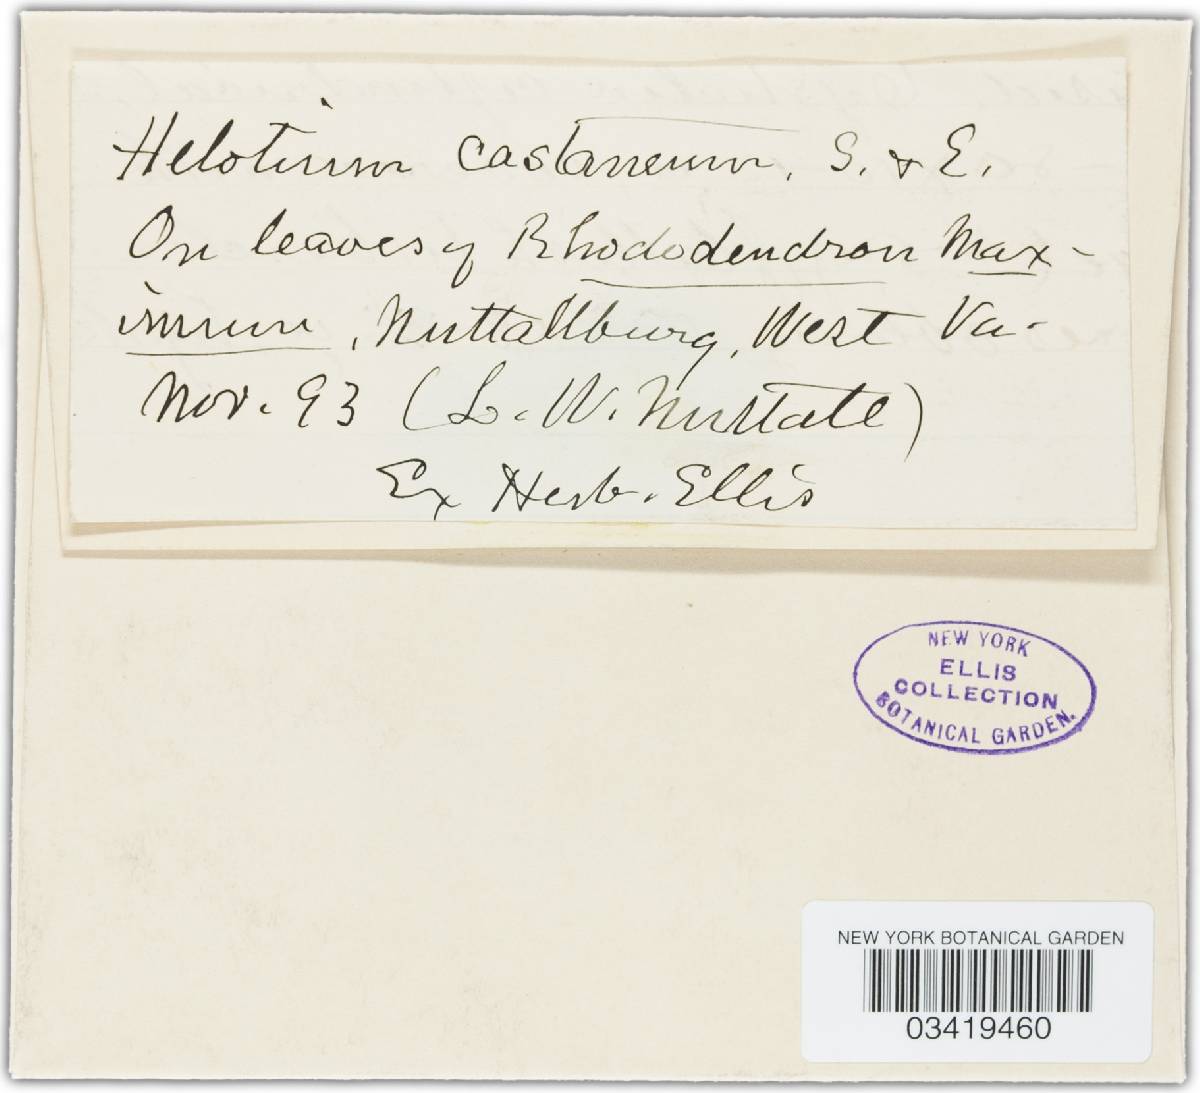 Helotium castaneum, S. & E.
On leaves of Rhododendron Max-
imum, Nuttallburg, West Va.
Nov. 93 (L. W. Nuttall)
Ex Herb. Ellis
NEW YORK
ELLIS
COLLECTION
BOTANICAL GARDEN.
NEW YORK BOTANICAL GARDEN
03419460